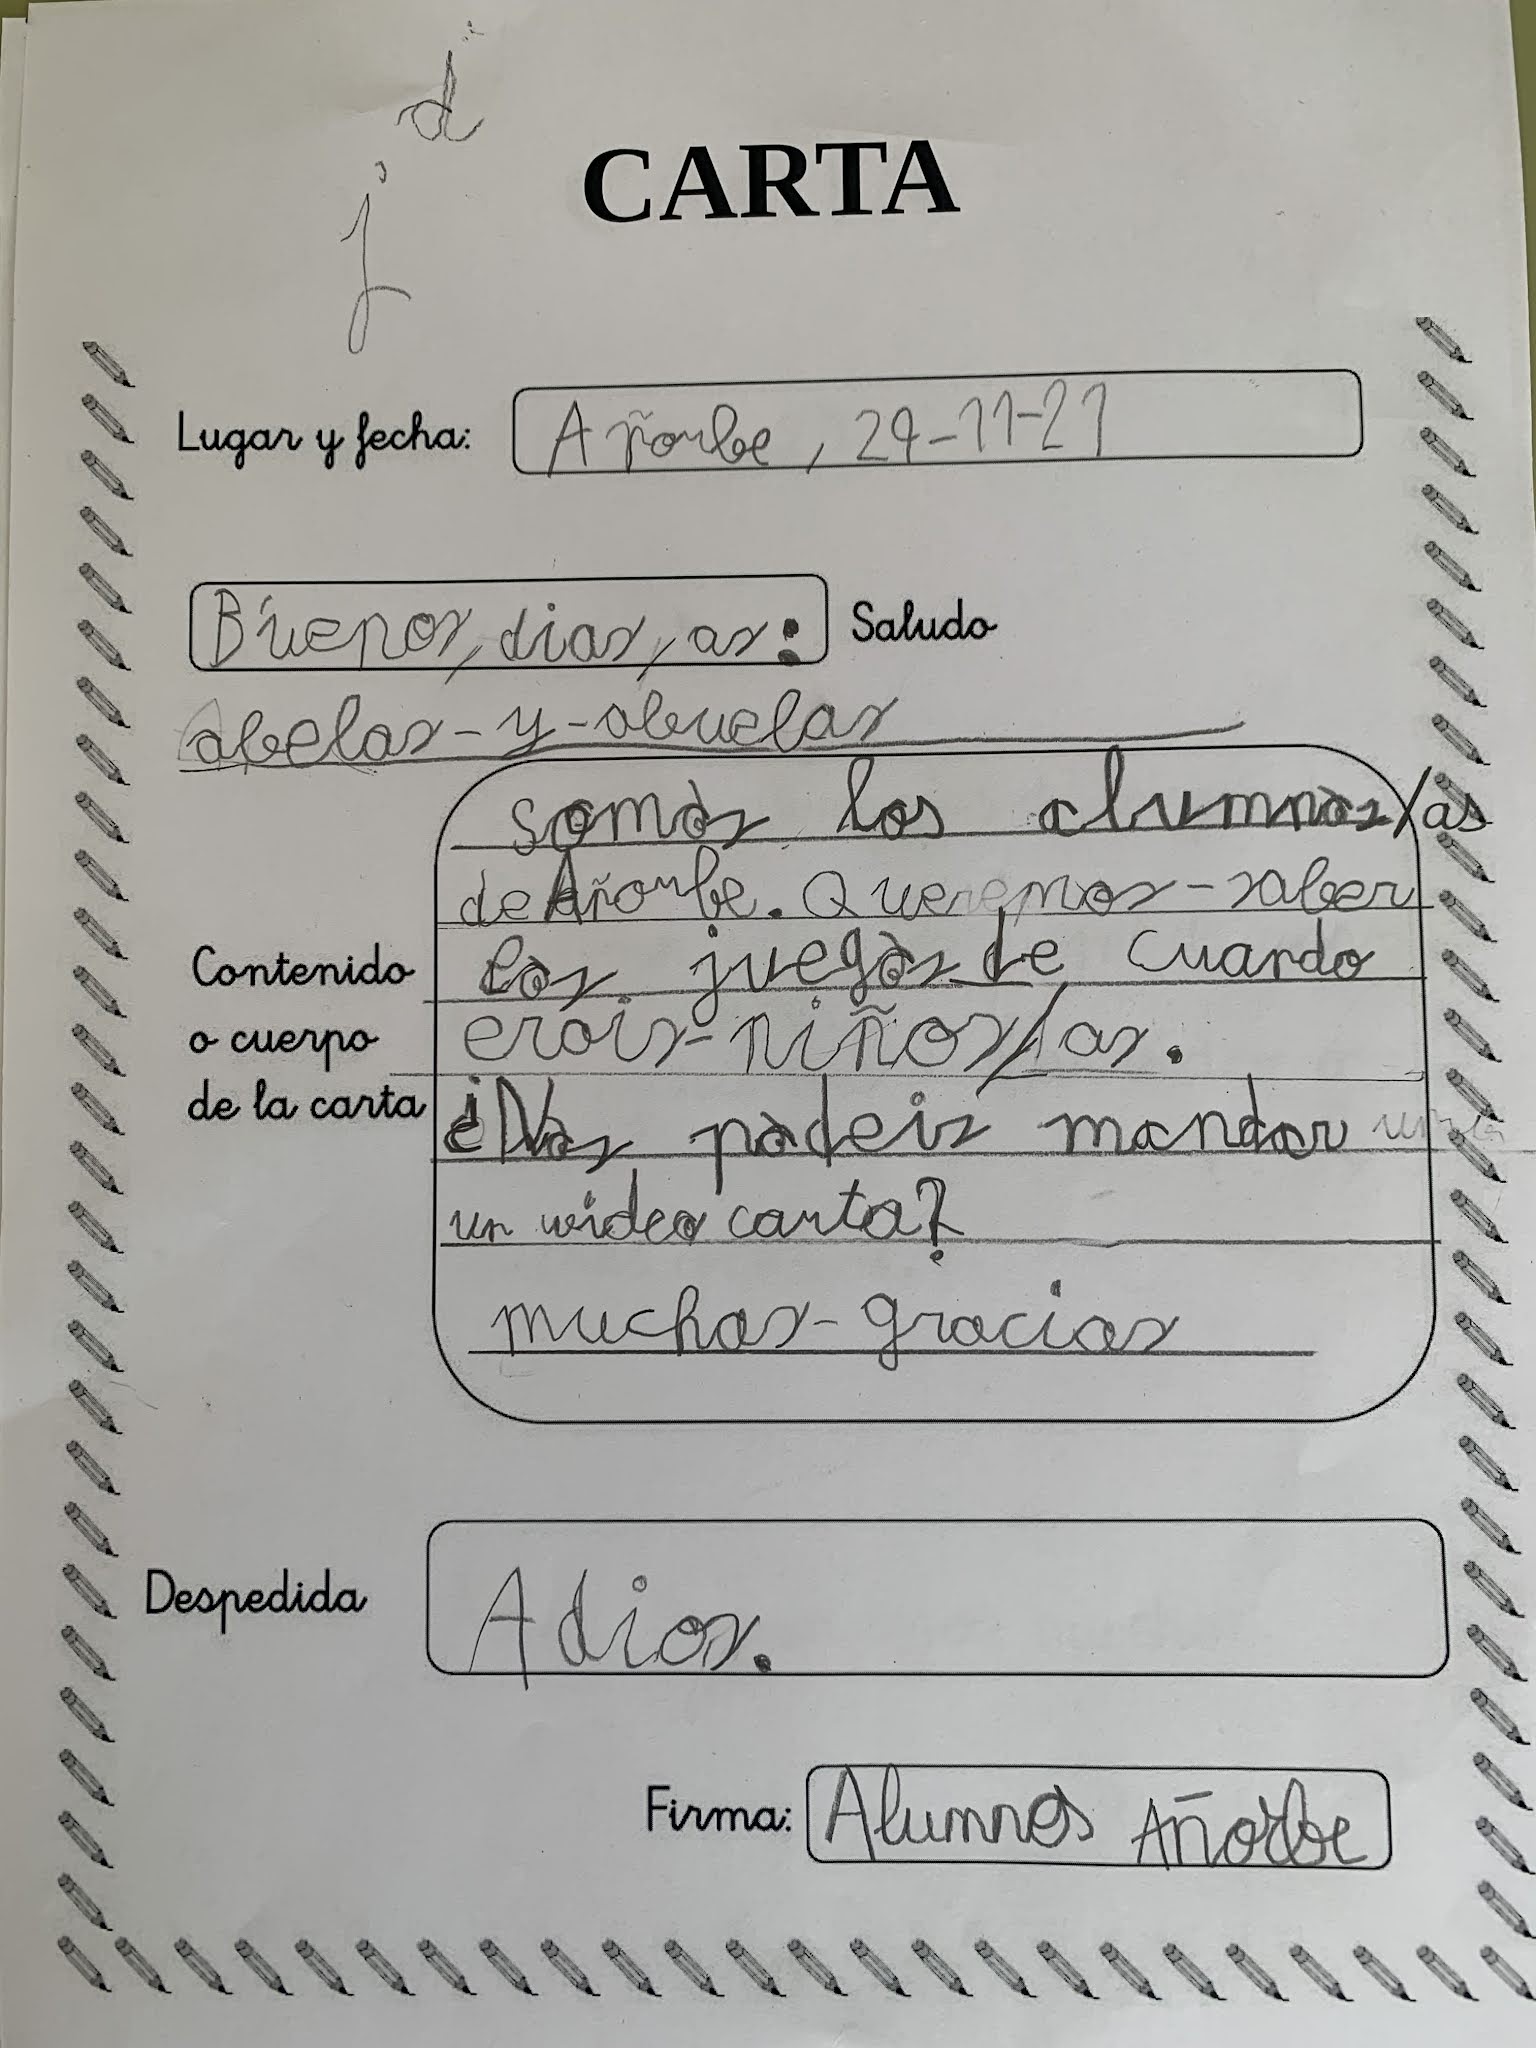 d
j
CARTA
Lugar y fecha: Añorbe, 29-11-21
Buenos, dias, as: Saludo
abelas-y-abuelas
somos los alumnos/as
de Añorbe. Queremos-saber
los juegos de cuando
erais-niños/as.
¿Nos podeis mandar
un video carta?
muchas-gracias
Contenido
o cuerpo
de la carta
Despedida
Adios.
Firma: Alumnos Añorbe